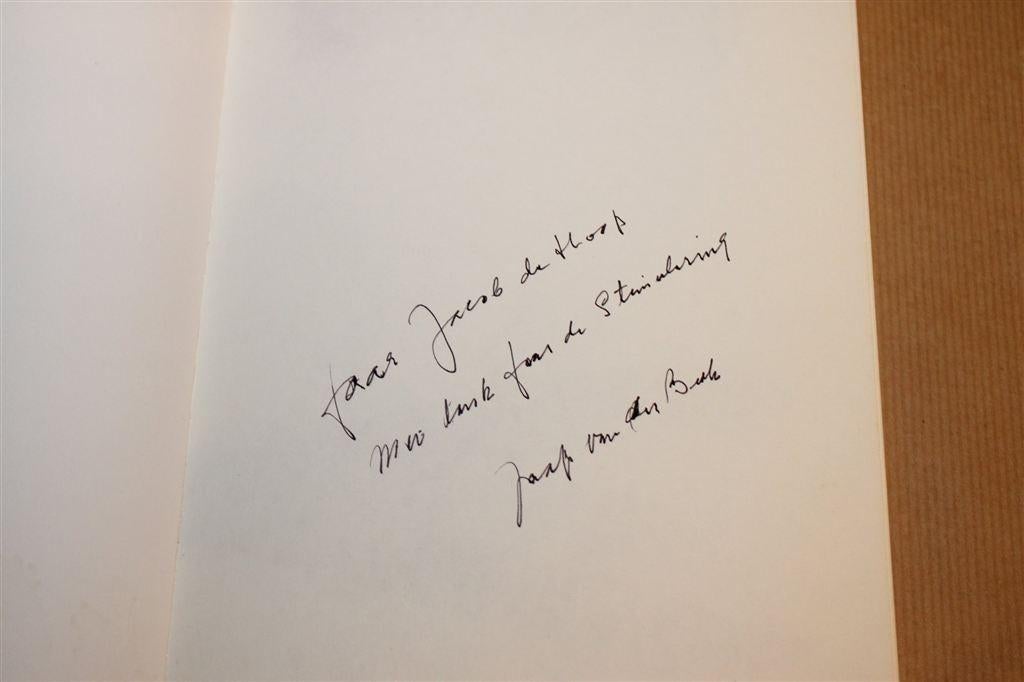 Jacob de Hoop
dank voor de Stimulering
Jaap van der Beek